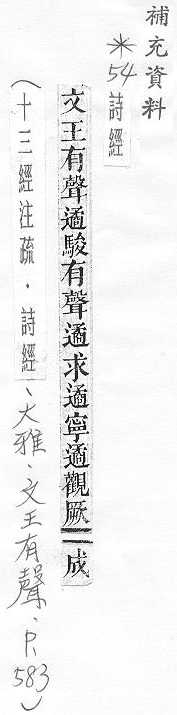 補充資料
*54 詩經
文王有聲遹駿有聲遹求遹寧遹觀厥成
(十三經注疏．詩經、大雅．文王有聲．P.583)